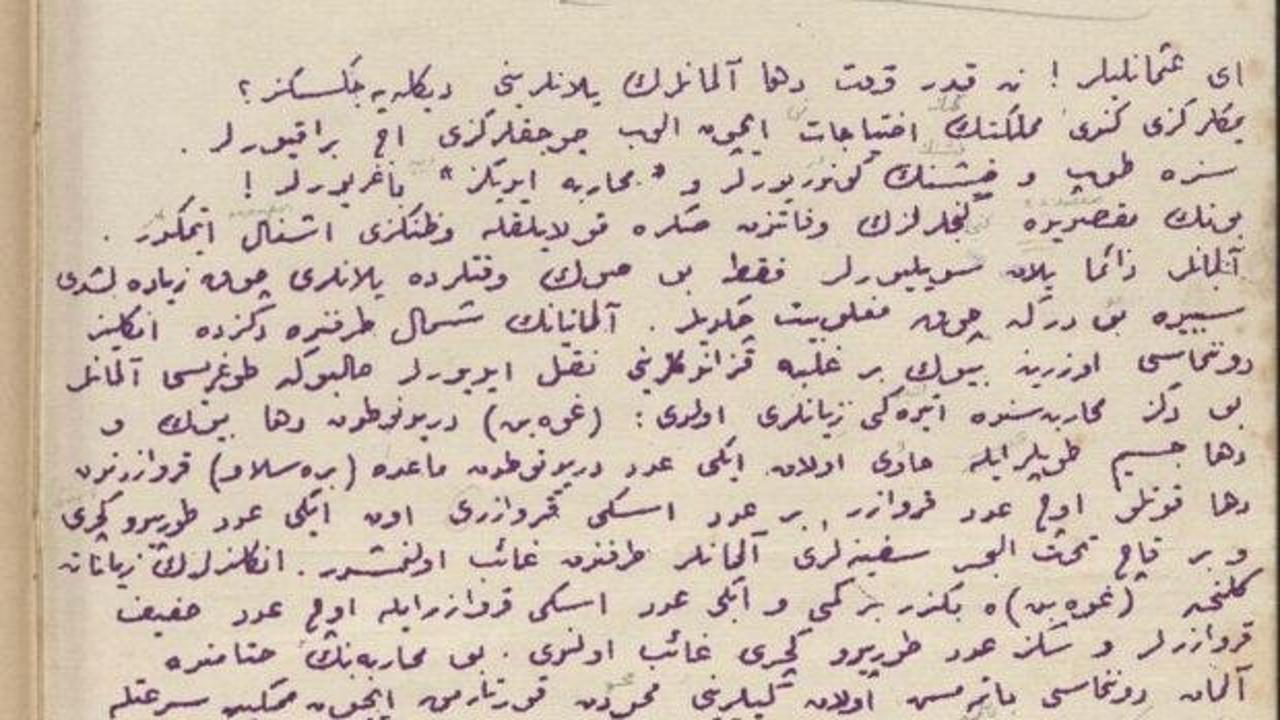 ای عثمانلیلر ! نه قدر وقت دها آلمانلرك یلانلرینی دیكله‌یه‌جكسكز ؟
یمكلركزی كندی مملكتنك احتیاجات ایچون الوب چوجقلركزی اچ براقیورلر .
سزه طوپ و فیشنك كوندریورلر و "محاربه ایدیكز" باغریورلر !
بونك مقصدیده كنجلرلرك وفاتندن صكره قولایلقله وطنكزی اشغال ایتمكدر .
آلمانلر دائما یلان سویلیورلر فقط بو صوك وقتلرده یلانلری چوق زیاده‌لشدی
سببیده بو دركه چوق مغلوبیت چكدیلر . آلمانیانك شمال طرفنده دكزده انكلیز
دوننماسی اوزرینه بیوك بر غلبه قزاندقلرینی نقل ایدیورلر حالبوكه طوغریسی آلمانلر
بو دكز محاربه‌سنده آتیده‌كی زیانلری اولدی : (غوه‌بن) دریدنوطدن دها بیوك و
دها جسیم طوپلر ایله حاوی اولان ایكی عدد دریدنوطدن ماعده (بره‌سلاو) قروازرندن
دها قوتلی اوچ عدد قروازر بر عدد اسكی قروازری اون ایكی عدد طورپیدو كچری
و بر قاچ تحت البحر سفینه‌لری آلمانلر طرفندن غائب اولنمشدر . انكلیزلرك زیاناتنه
كلنجه (غوه‌بن)ه بكزر بر كمی و ایكی عدد اسكی قروازر ایله اوچ عدد خفیف
قروازرلر و سكز عدد طورپیدو كچری غائب اولندی . بو محاربه‌نك ختامنده
آلمان دوننماسی باتمامش اولان كمیلرینی محودن قورتارمق ایچون ممكن سرعتله